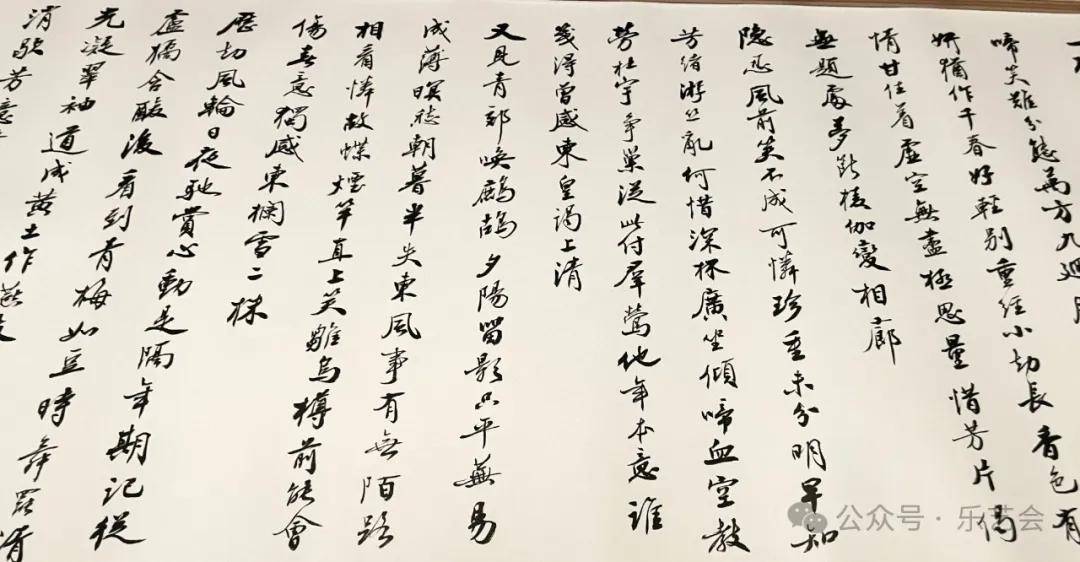 啼笑難分態萬方九迴
妍猶作千春好輕別重經小劫長香色有
情甘住着虛空無盡極思量惜芳片偈
無題處夢斷棱伽變相廊
隐忍風前笑不成可憐珍重未分明早知
芳緒游丝亂何惜深杯廣坐傾啼血空教
勞杜宇爭巢從此付羣鶯他年本意誰
箋得曾感東皇謁上清
又見青郊喚鷓鴣夕陽留影只平蕪易
成薄暝愁朝暮半失東風事有無陌路
相看憐故蝶煙竿直上笑雛烏樽前能會
傷春意獨感東闌雪二株
歷劫風輪日夜馳賞心動是隔年期記從
虛牖含酸後看到青梅如豆時舞罷清
光凝翠袖道成黃土作燕支
消歇芳意
公众号·乐艺会